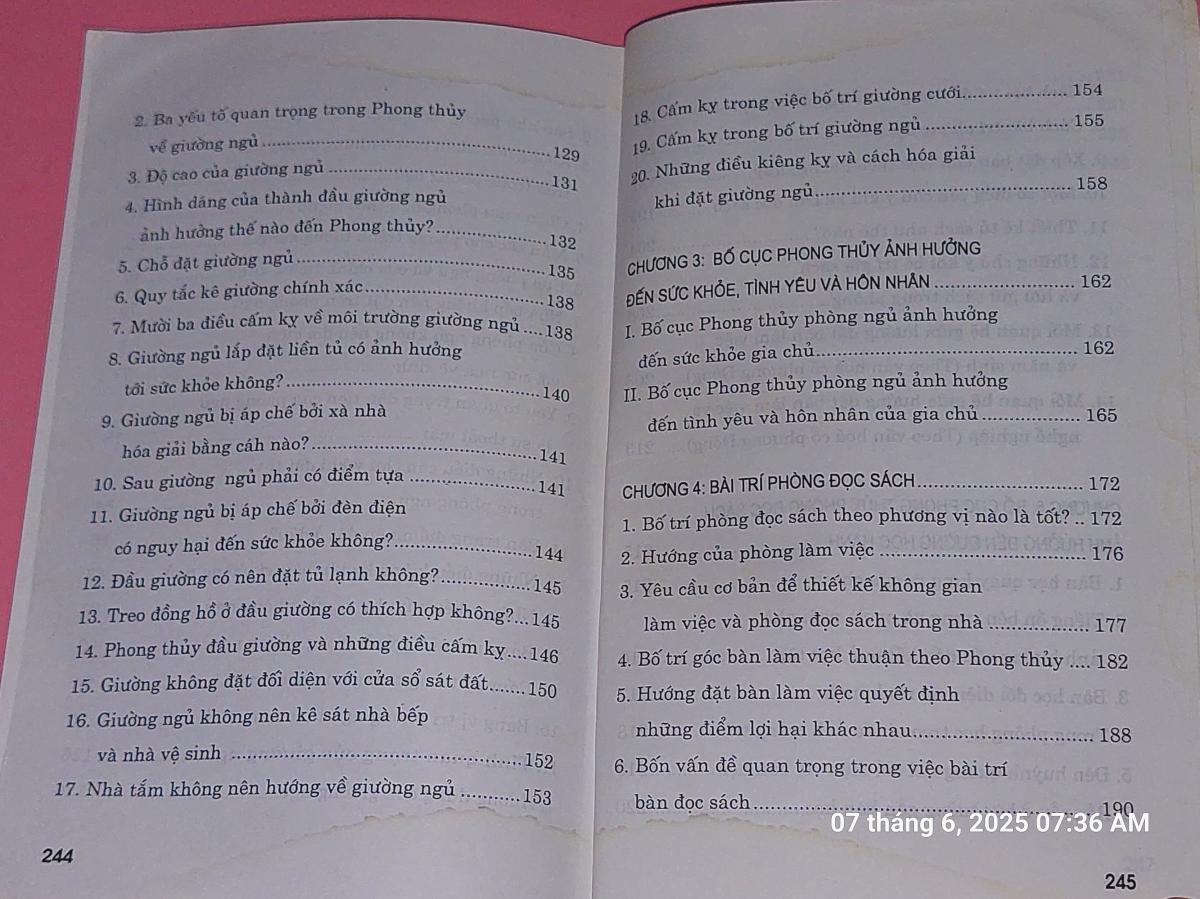 2. Ba yếu tố quan trọng trong Phong thủy
về giường ngủ ............................................................ 129
3. Độ cao của giường ngủ ............................................ 131
4. Hình dáng của thành đầu giường ngủ
ảnh hưởng thế nào đến Phong thủy? ...................... 132
5. Chỗ đặt giường ngủ .................................................. 135
6. Quy tắc kê giường chính xác .................................... 138
7. Mười ba điều cấm kỵ về môi trường giường ngủ .... 138
8. Giường ngủ lắp đặt liền tủ có ảnh hưởng
tới sức khỏe không? .................................................... 140
9. Giường ngủ bị áp chế bởi xà nhà
hóa giải bằng cáh nào? ............................................... 141
10. Sau giường ngủ phải có điểm tựa ......................... 141
11. Giường ngủ bị áp chế bởi đèn điện
có nguy hại đến sức khỏe không? ............................. 144
12. Đầu giường có nên đặt tủ lạnh không? .................. 145
13. Treo đồng hồ ở đầu giường có thích hợp không? ... 145
14. Phong thủy đầu giường và những điều cấm kỵ .... 146
15. Giường không đặt đối diện với cửa sổ sát đất ....... 150
16. Giường ngủ không nên kê sát nhà bếp
và nhà vệ sinh ............................................................ 152
17. Nhà tắm không nên hướng về giường ngủ ........... 153
244
18. Cấm kỵ trong việc bố trí giường cưới .................... 154
19. Cấm kỵ trong bố trí giường ngủ ........................... 155
20. Những điều kiêng kỵ và cách hóa giải
khi đặt giường ngủ ..................................................... 158
CHƯƠNG 3: BỐ CỤC PHONG THỦY ẢNH HƯỞNG
ĐẾN SỨC KHỎE, TÌNH YÊU VÀ HÔN NHÂN ......................... 162
I. Bố cục Phong thủy phòng ngủ ảnh hưởng
đến sức khỏe gia chủ ................................................... 162
II. Bố cục Phong thủy phòng ngủ ảnh hưởng
đến tình yêu và hôn nhân của gia chủ .................... 165
CHƯƠNG 4: BÀI TRÍ PHÒNG ĐỌC SÁCH ............................... 172
1. Bố trí phòng đọc sách theo phương vị nào là tốt? .. 172
2. Hướng của phòng làm việc ...................................... 176
3. Yêu cầu cơ bản để thiết kế không gian
làm việc và phòng đọc sách trong nhà .................... 177
4. Bố trí góc bàn làm việc thuận theo Phong thủy .... 182
5. Hướng đặt bàn làm việc quyết định
những điểm lợi hại khác nhau .................................. 188
6. Bốn vấn đề quan trọng trong việc bài trí
bàn đọc sách ............................................................... 190
07 tháng 6, 2025 07:36 AM
245